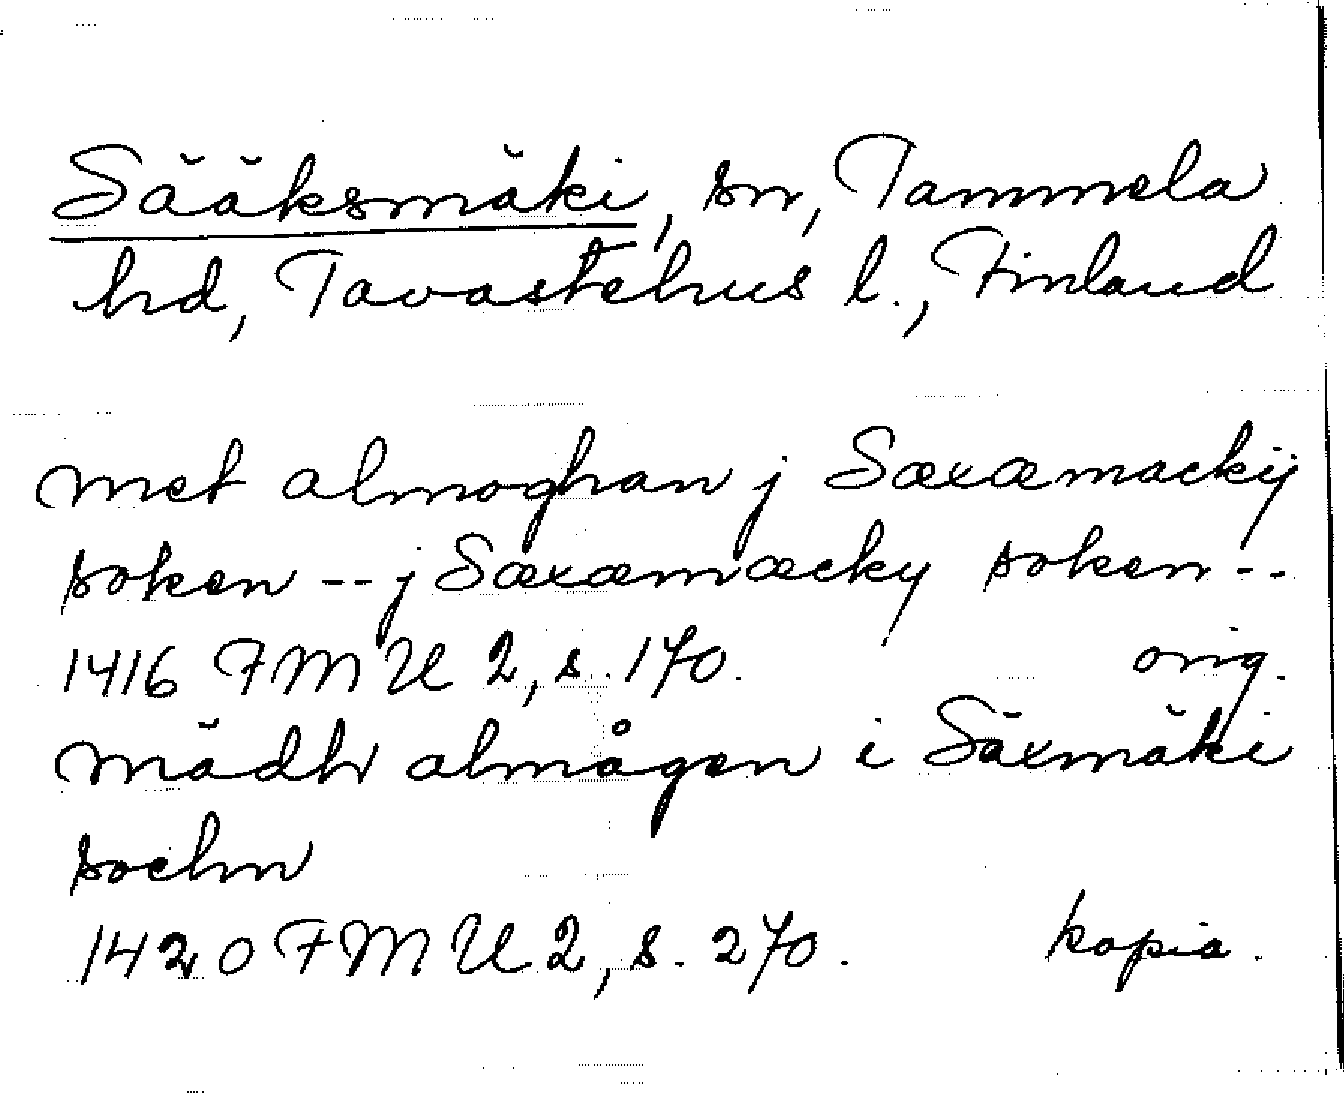 Sääksmäki, sn, Tammela
hd, Tavastehus l., Finland
met almoghan j Sæxæmackij
soken -- j Sæxæmæcky soken --
1416 FMU 2, s. 170. orig.
mädh almågen i Säxmäki
sochn
1420 FMU 2, s. 270. kopia.